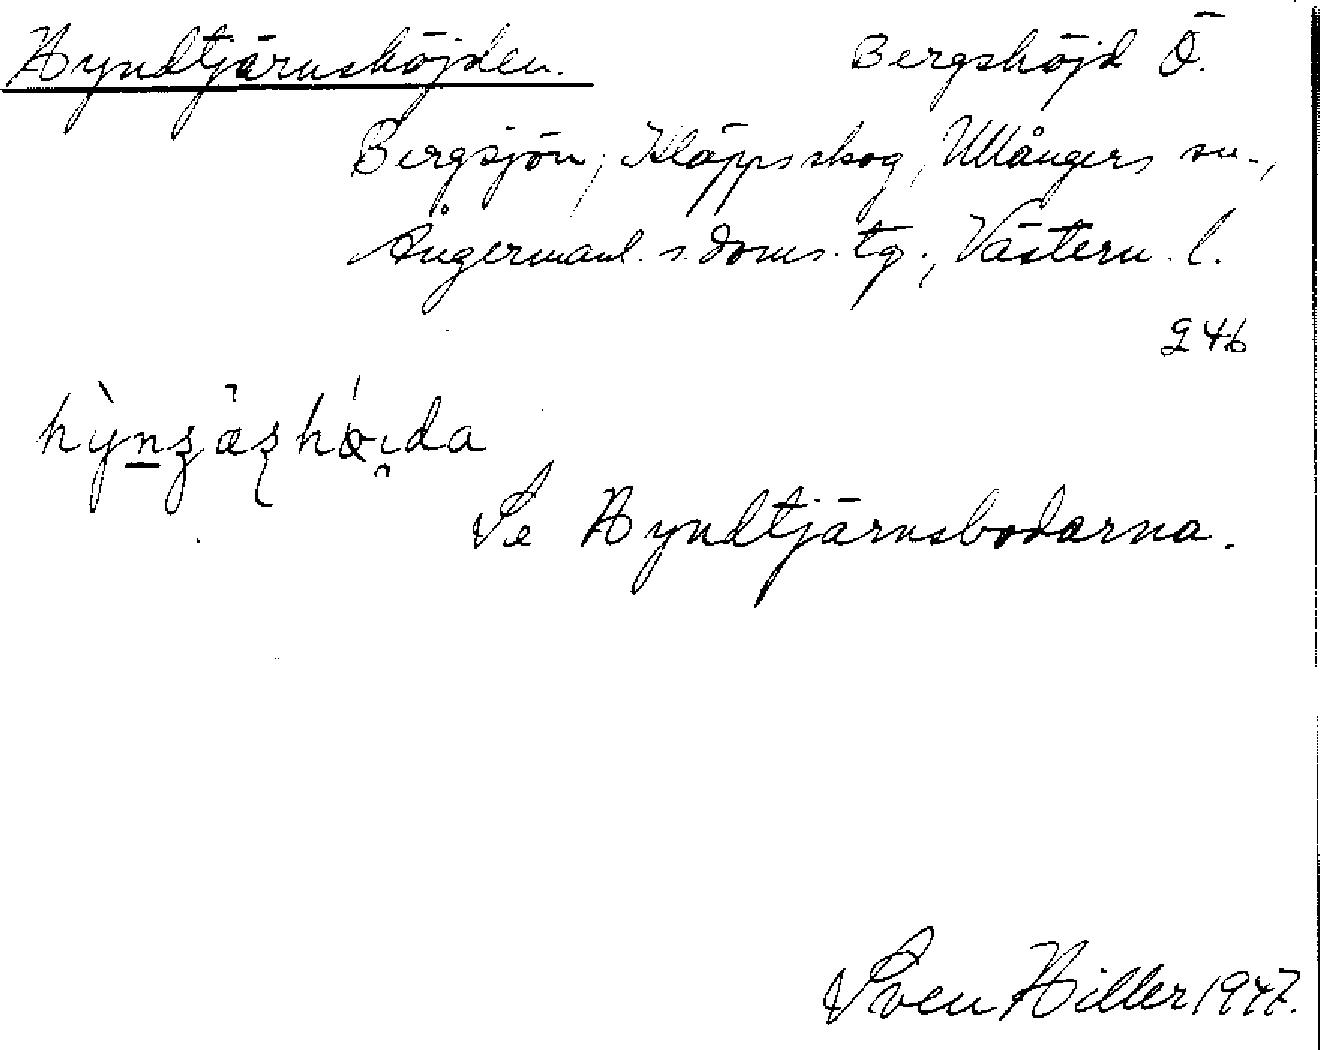 Hyndtjärnshöjden. Bergshöjd Ö.
Bergsjön, Kläppsskog, Ullångers sn.,
Ångermanl. s. doms. tg., Västern. l.
246
Se Hyndtjärnsbodarna.
Sven Hiller 1947.